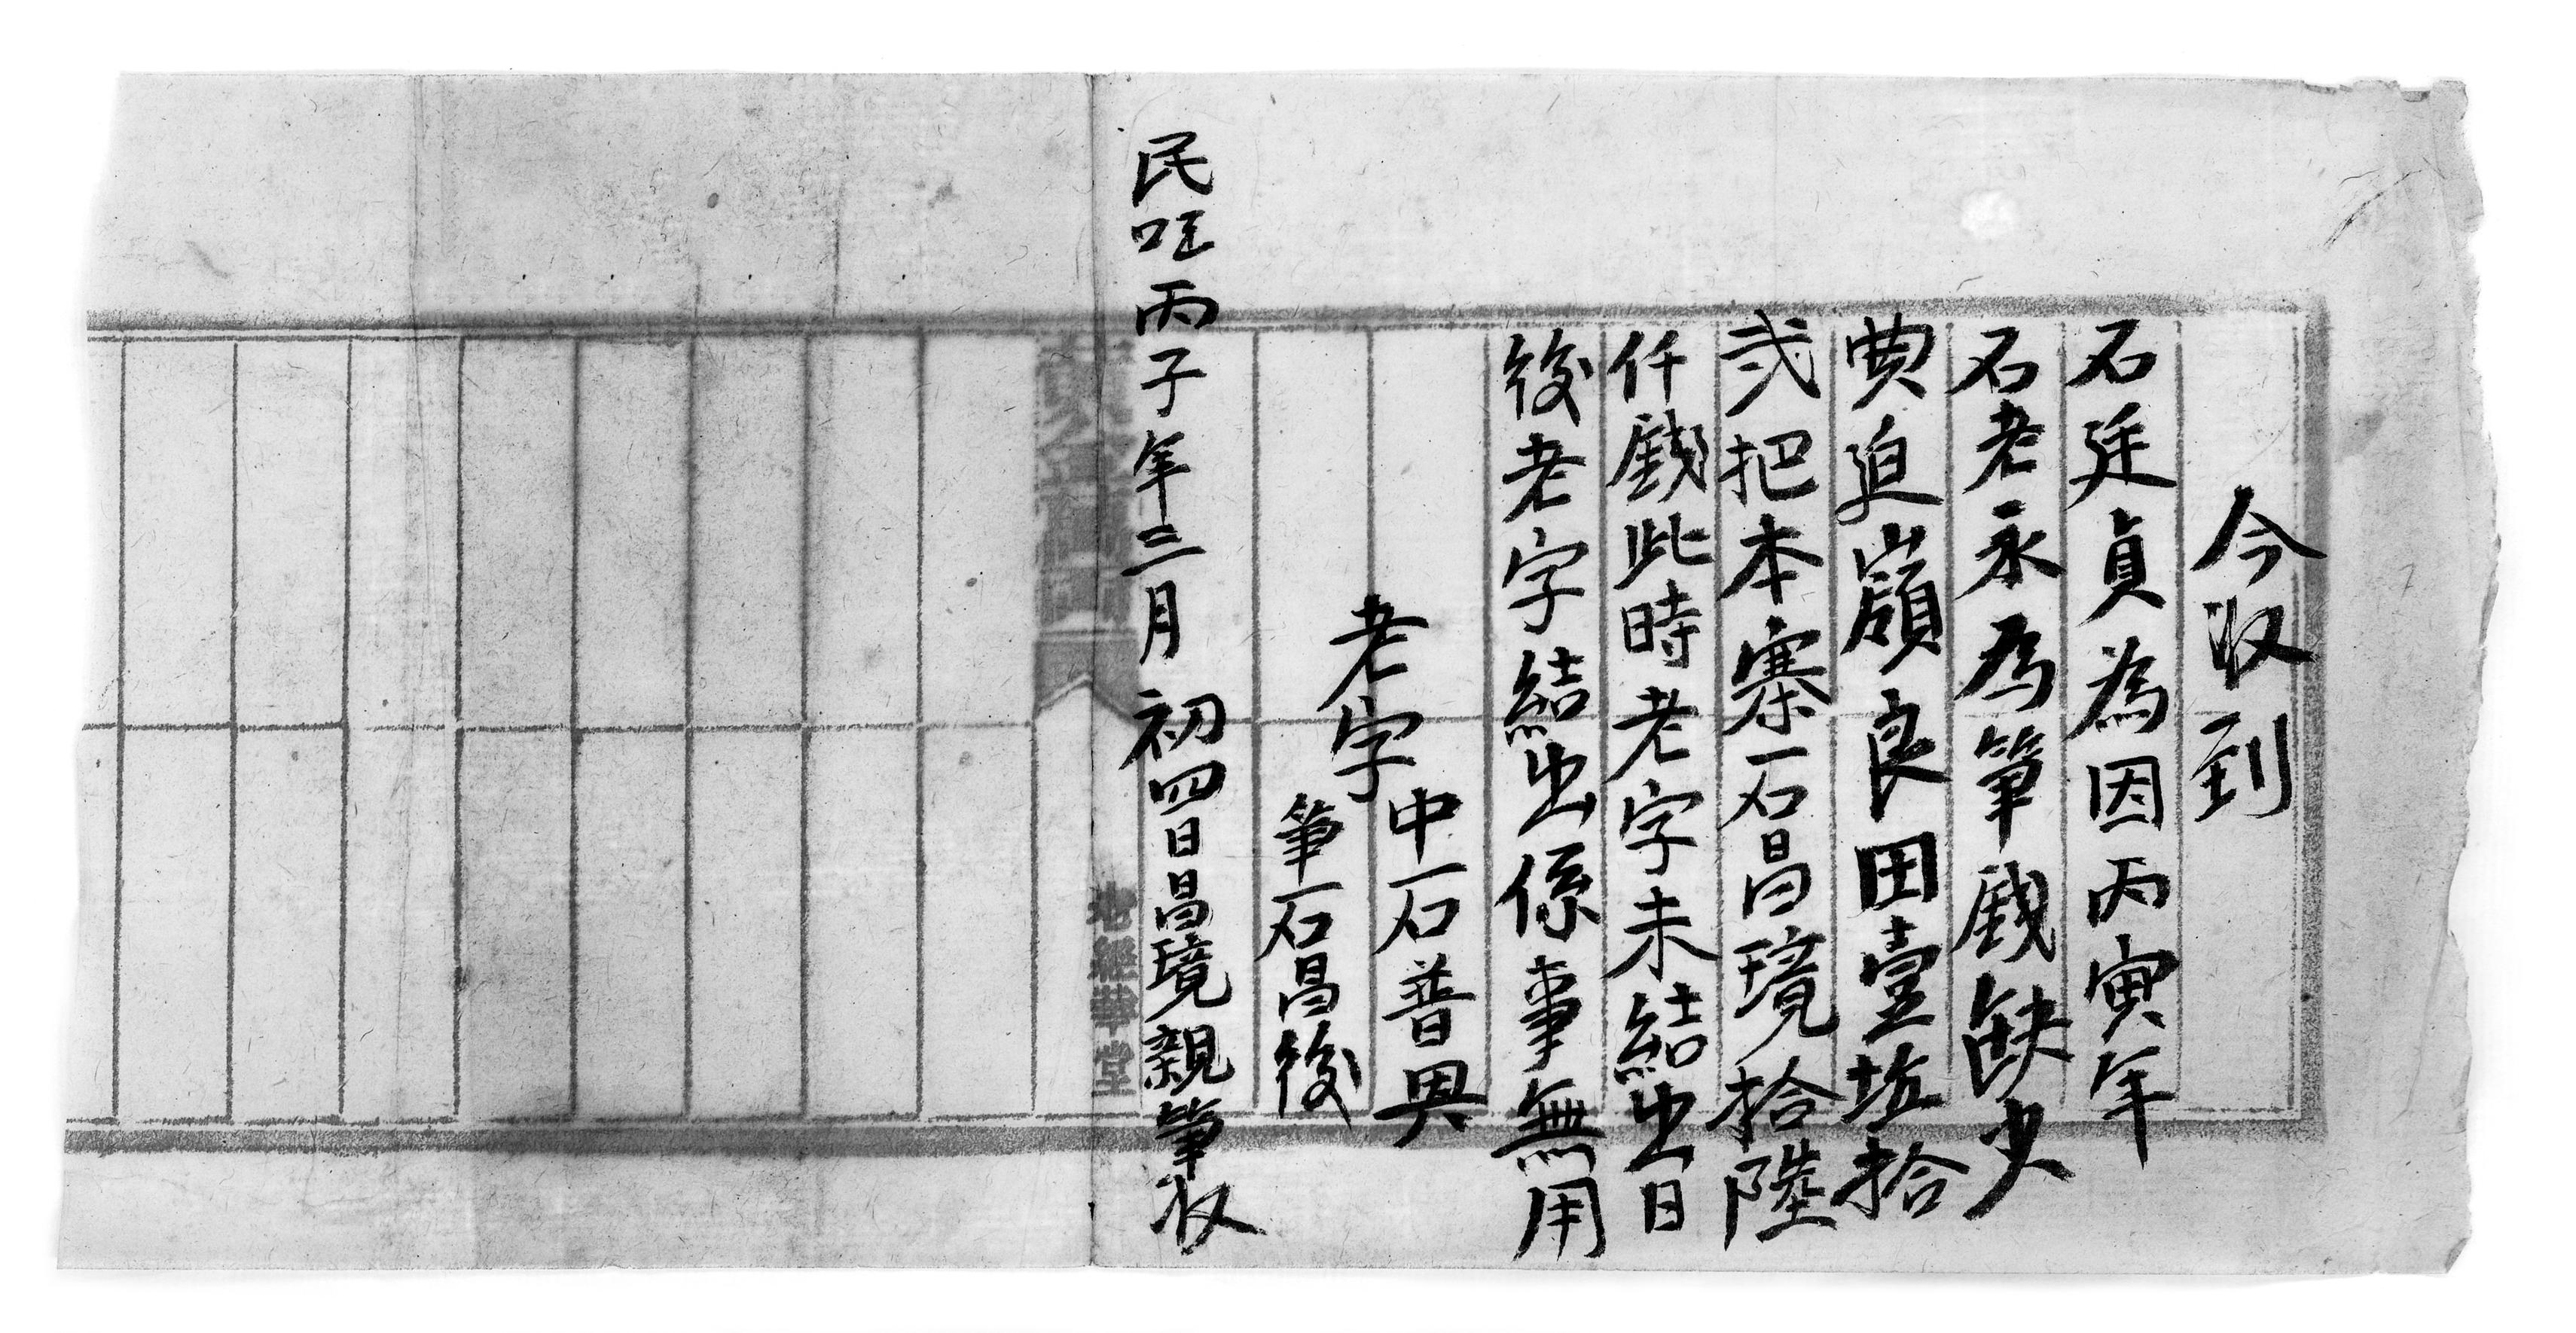 今收到
石廷貞為因丙寅年
石老永為筆戲缺少
典迫嶺良田壹坵拾
弍把本寨石昌璄拾陸
仟戲此時老字未結出日
後老字結出係事無用
老字
中石普興
筆石昌後
民囯丙子年三月初四日昌璄親筆收
堂